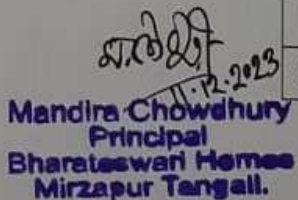 11.12.2023
Mandira Chowdhury
Principal
Bharateswari Homes
Mirzapur Tangail.